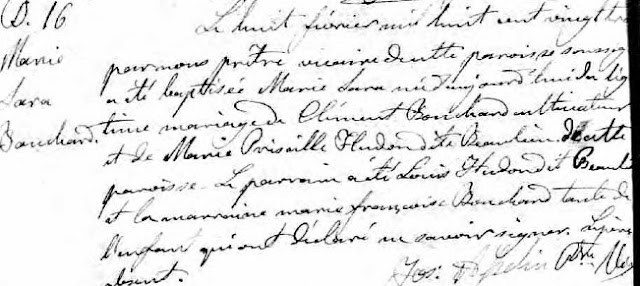 B. 16
Marie
Sara
Bouchard.
Le huit février mil huit cent vingt
par nous prêtre vicaire de cette paroisse soussig
a été baptisée Marie Sara née aujourd'hui du lég
time mariage de Clément Bouchard cultivateur
et de Marie Prisille Hudon dite Beaulieu de cette
paroisse. Le parrain a été Louis Hudon dit Beaulie
et la marraine marie françoise Bouchard tante de
l'enfant qui ont déclaré ne savoir signer. Le père
absent.
Jos. Ptre